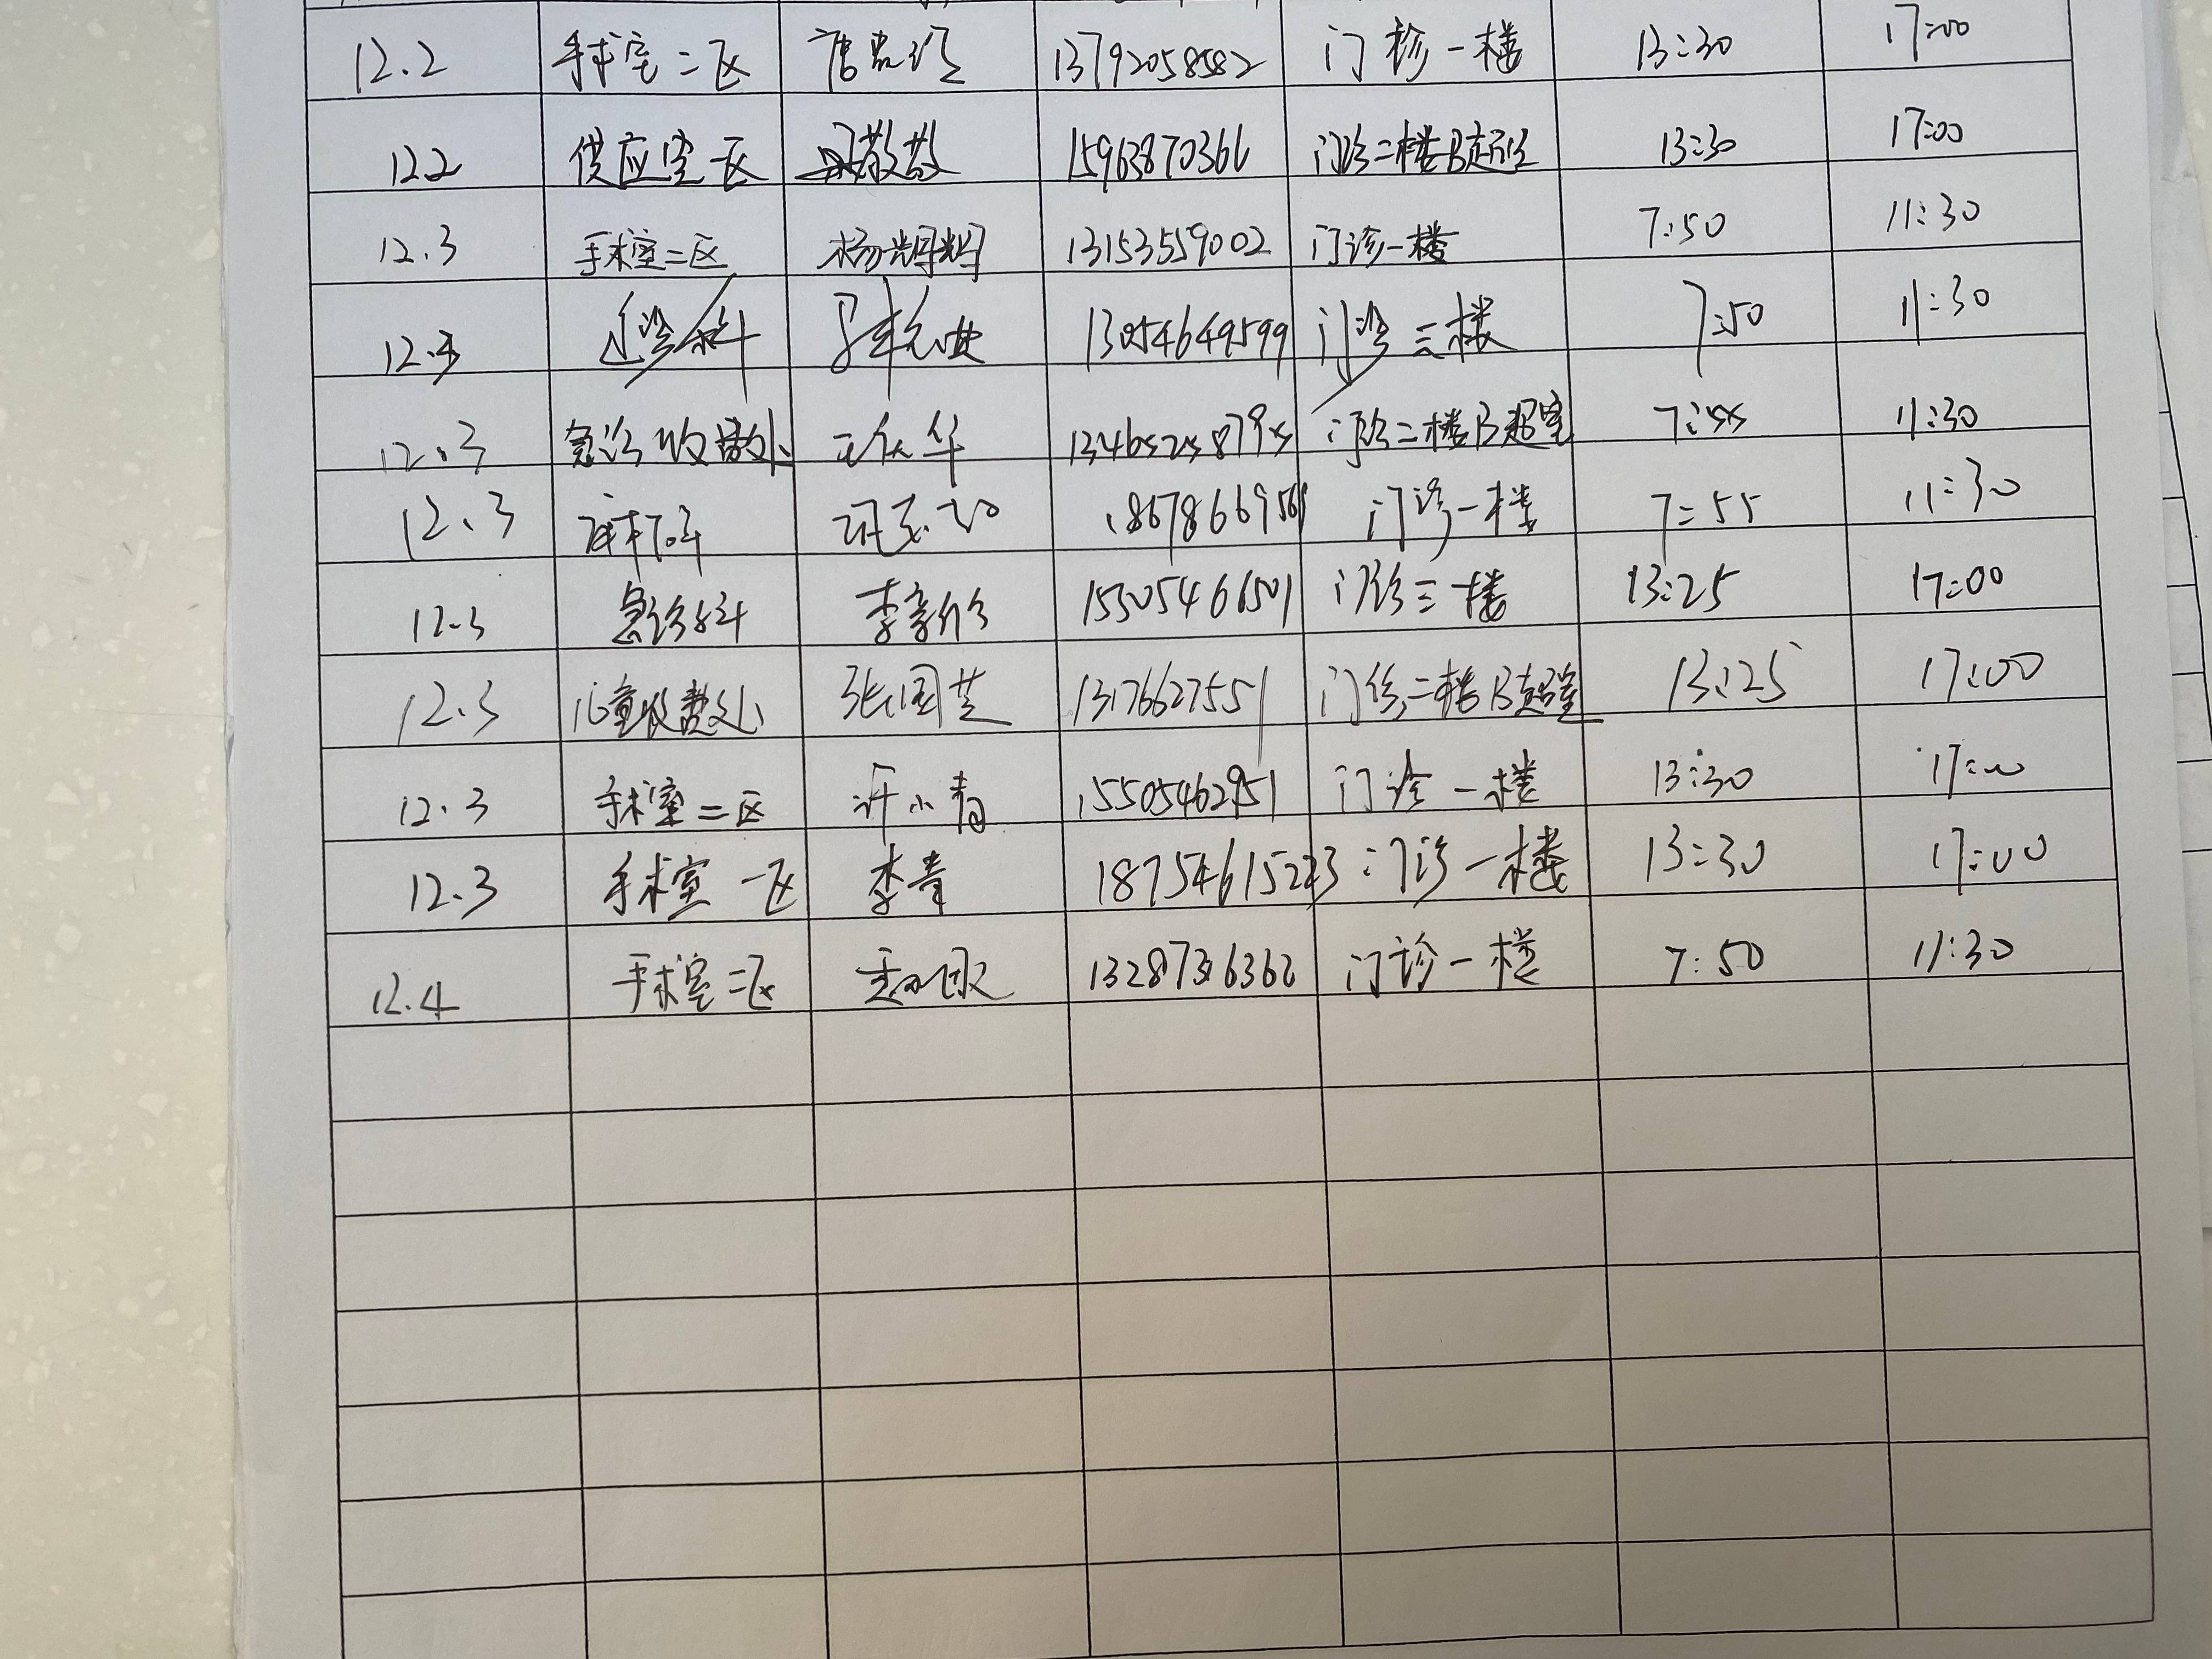 12.2 手术室二区 13792058582 门诊一楼 13:30 17:00
12.2 供应室一区 15963870366 门诊二楼B超室 13:30 17:00
12.3 手术室二区 杨辉辉 13153559002 门诊一楼 7:50 11:30
12.3 13054649599 门诊三楼 7:50 11:30
12.3 急诊收费处 门诊二楼B超室 7:55 11:30
12.3 门诊一楼 7:55 11:30
12.3 急诊科 15305466501 门诊三楼 13:25 17:00
12.3 儿童收费处 张国芝 13176627551 门诊二楼B超室 13:25 17:00
12.3 手术室二区 许小青 15505462951 门诊一楼 13:30 17:00
12.3 手术室一区 李青 门诊一楼 13:30 17:00
12.4 手术室二区 13287316362 门诊一楼 7:50 11:30